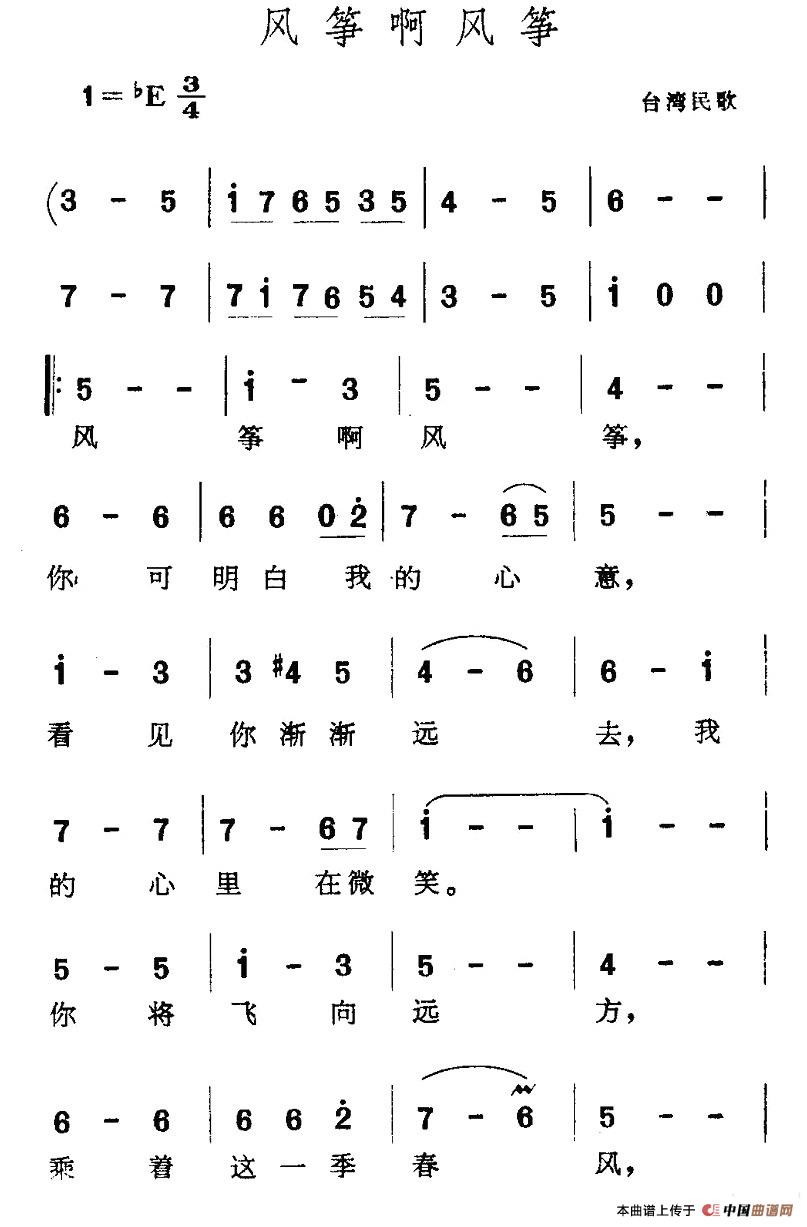 风筝啊风筝
1=♭E 3/4
台湾民歌
(3 - 5 | i 7 6 5 3 5 | 4 - 5 | 6 - - |
7 - 7 | 7 i 7 6 5 4 | 3 - 5 | i 0 0 |
‖: 5 - - | i - 3 | 5 - - | 4 - - |
风 筝 啊 风 筝，
6 - 6 | 6 6 0 2̇ | 7 - 6 5 | 5 - - |
你 可 明 白 我 的 心 意，
i - 3 | 3 #4 5 | 4 - 6 | 6 - i |
看 见 你 渐 渐 远 去，我
7 - 7 | 7 - 6 7 | i - - | i - - |
的 心 里 在 微 笑。
5 - 5 | i - 3 | 5 - - | 4 - - |
你 将 飞 向 远 方，
6 - 6 | 6 6 2̇ | 7 - 6 | 5 - - |
乘 着 这 一 季 春 风，
本曲谱上传于 中国曲谱网